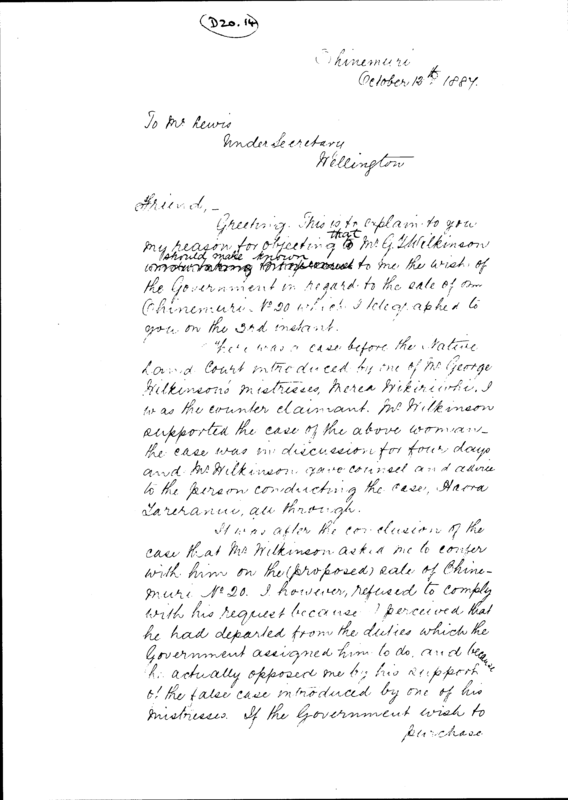 (D20.14)
Ohinemuri
October 12th 1887.
To Mr Lewis
Under Secretary
Wellington
Friend,-
Greeting. This is to explain to you
my reason for objecting that Mr G. T. Wilkinson
should make known to me the wish of
the Government in regard to the sale of our
Ohinemuri No 20 which I telegraphed to
you on the 3rd instant.
There was a case before the Native
Land Court introduced by one of Mr George
Wilkinson's mistresses, Merea Wikiriwhi. I
was the counter claimant. Mr Wilkinson
supported the case of the above woman-
the case was in discussion for four days
and Mr Wilkinson gave counsel and advice
to the person conducting the case, Haora
Tareranui, all through.
It was after the conclusion of the
case that Mr Wilkinson asked me to confer
with him on the (proposed) sale of Ohine-
muri No 20. I however, refused to comply
with his request because I perceived that
he had departed from the duties which the
Government assigned him to do, and because
he actually opposed me by his support
of the false case introduced by one of his
mistresses. If the Government wish to
purchase